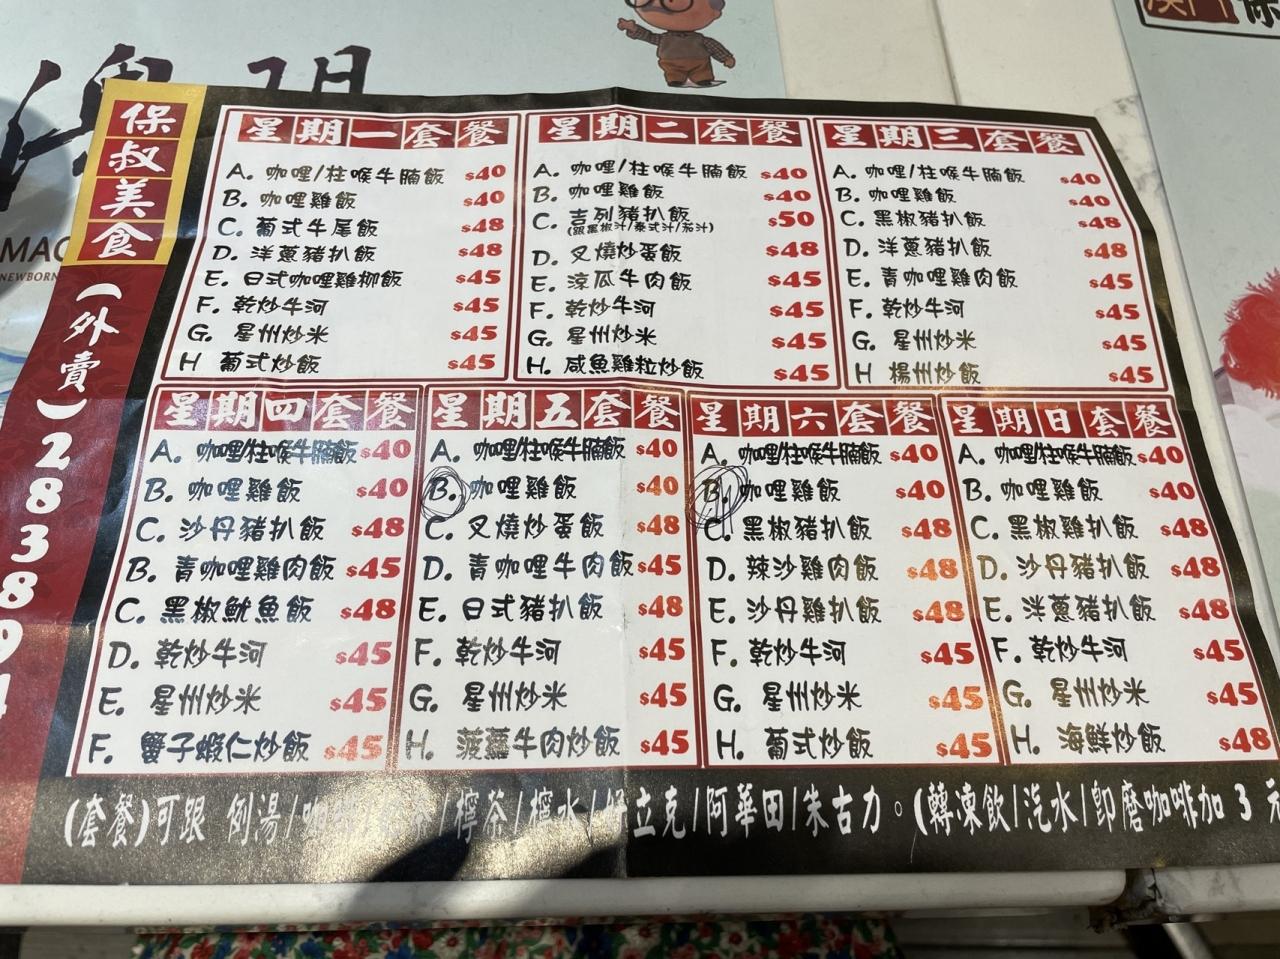 MAC
NEWBORN
保叔美食
(外賣)2838
星期一套餐
A. 咖哩/柱喉牛腩飯 $40
B. 咖哩雞飯 $40
C. 葡式牛尾飯 $48
D. 洋蔥豬扒飯 $48
E. 日式咖哩雞柳飯 $45
F. 乾炒牛河 $45
G. 星州炒米 $45
H 葡式炒飯 $45
星期二套餐
A. 咖哩/柱喉牛腩飯 $40
B. 咖哩雞飯 $40
C. 吉列豬扒飯 $50
(跟黑椒汁/泰式汁/茄汁)
D. 叉燒炒蛋飯 $48
E. 涼瓜牛肉飯 $45
F. 乾炒牛河 $45
G. 星州炒米 $45
H. 咸魚雞粒炒飯 $45
星期三套餐
A. 咖哩/柱喉牛腩飯 $40
B. 咖哩雞飯 $40
C. 黑椒豬扒飯 $48
D. 洋蔥豬扒飯 $48
E. 青咖哩雞肉飯 $45
F. 乾炒牛河 $45
G. 星州炒米 $45
H 楊州炒飯 $45
星期四套餐
A. 咖哩/柱喉牛腩飯 $40
B. 咖哩雞飯 $40
C. 沙丹豬扒飯 $48
B. 青咖哩雞肉飯 $45
C. 黑椒魷魚飯 $48
D. 乾炒牛河 $45
E. 星州炒米 $45
F. 蟹子蝦仁炒飯 $45
星期五套餐
A. 咖哩/柱喉牛腩飯 $40
B. 咖哩雞飯 $40
C. 叉燒炒蛋飯 $48
D. 青咖哩牛肉飯 $45
E. 日式豬扒飯 $48
F. 乾炒牛河 $45
G. 星州炒米 $45
H. 菠蘿牛肉炒飯 $45
星期六套餐
A. 咖哩/柱喉牛腩飯 $40
B. 咖哩雞飯 $40
C. 黑椒豬扒飯 $48
D. 辣沙雞肉飯 $48
E. 沙丹雞扒飯 $48
F. 乾炒牛河 $45
G. 星州炒米 $45
H. 葡式炒飯 $45
星期日套餐
A. 咖哩/柱喉牛腩飯 $40
B. 咖哩雞飯 $40
C. 黑椒雞扒飯 $48
D. 沙丹豬扒飯 $48
E. 洋蔥豬扒飯 $48
F. 乾炒牛河 $45
G. 星州炒米 $45
H. 海鮮炒飯 $48
(套餐)可跟 例湯/咖啡/紅茶/檸茶/檸水/好立克/阿華田/朱古力。(轉凍飲/汽水/即磨咖啡加 3 元